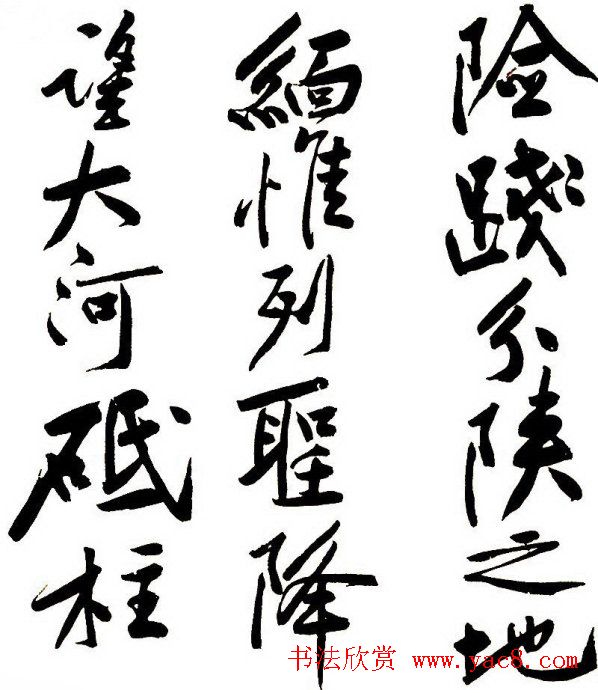 險踐分陝之地
緬惟列聖降
望大河砥柱
书法欣赏 www.yac8.com